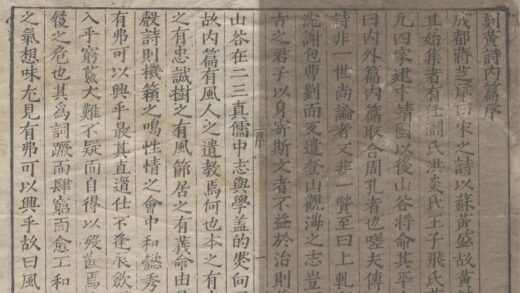 刻黄詩内篇序
成都蔣芝序曰宋之詩以蘇黄盛故黄詩
世始集者有任淵氏洪炎氏王子飛氏
凢四家建中靖國以後山谷將命其平
曰内外篇内篇取合周孔者也嗟夫傳
詩非一世尚論者又非一賢至曰上軋
沈謝包曹劉而又遺登山觀海之志豈
古之君子以身寄斯文者不益於治則
序
山谷在二三真儒中志與學盖的然向
故内篇有風人之遺教焉何也本之有
之有忠誠樹之有風節居之有義命由
發詩則機籟之鳴性情之會中和懿秀
有弗可以興乎最其直道仕不逢辰歛
入乎窮大難不疑而自得以歿齒焉
之危也其爲詞蹶而肆窮而愈工和
之氣想味尤見有弗可以興乎故曰風